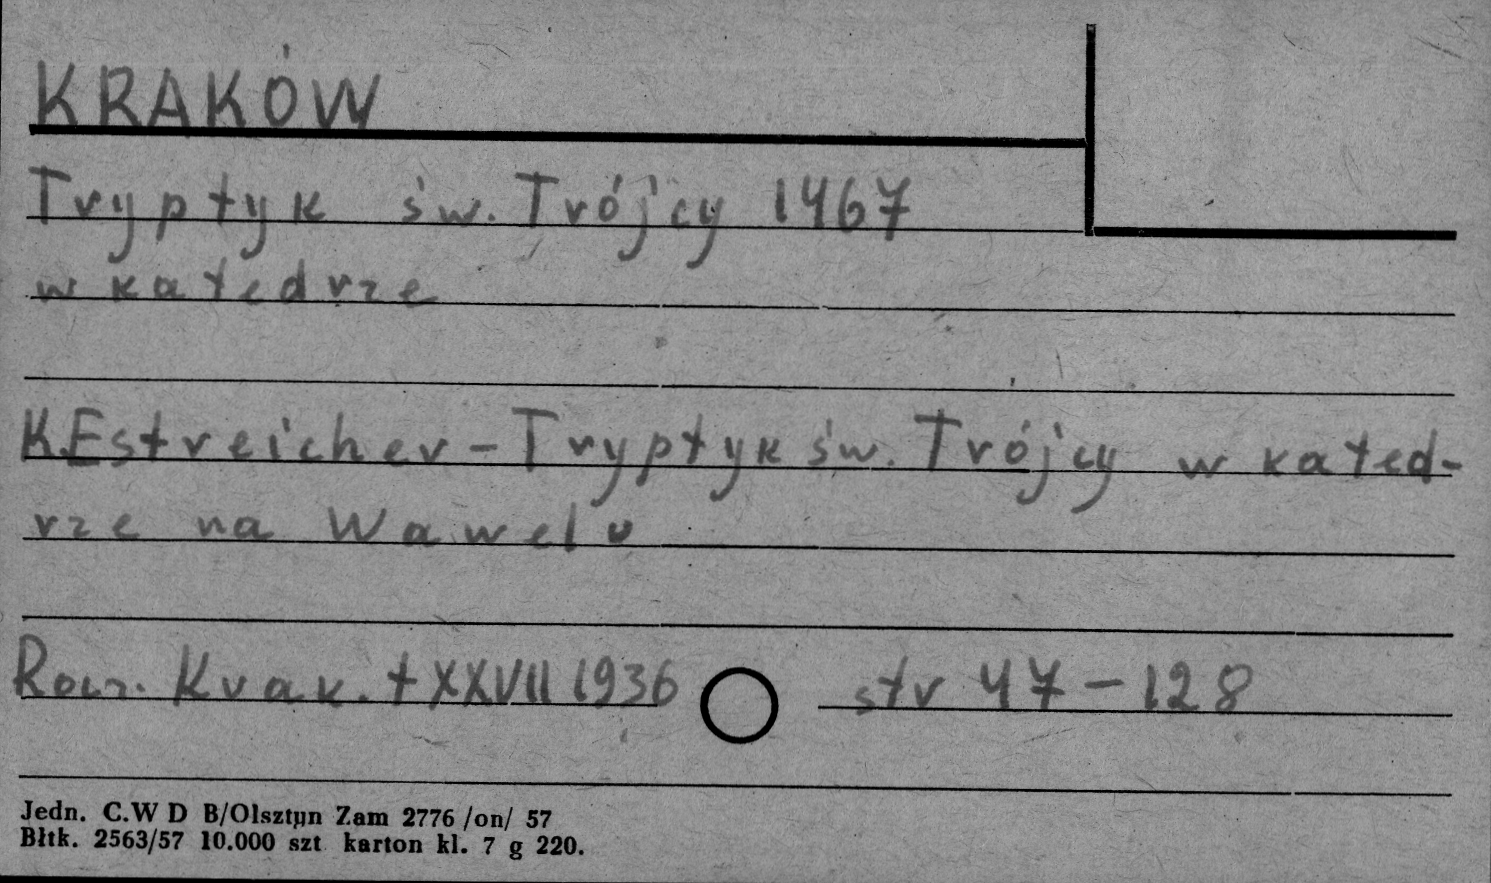 KRAKÓW
Tryptyk św. Trójcy 1467
w katedrze
K.Estreicher – Tryptyk św. Trójcy w kated-
rze na Wawelu
Rocz. Krak. t XXVII 1936 str 47 – 128
Jedn. C.W D B/Olsztyn Zam 2776 /on/ 57
Błtk. 2563/57 10.000 szt karton kl. 7 g 220.